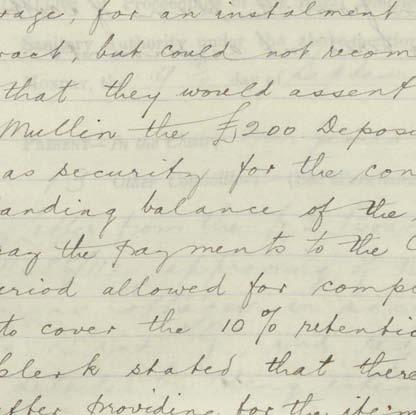 rage, for an instalment
ract, but could not recom
that they would assent
Mullin the £200 Deposi
as security for the con
anding balance of the
ay the payments to the C
eriod allowed for comp
to cover the 10% retentio
blerk stated that there
fter providing for the item